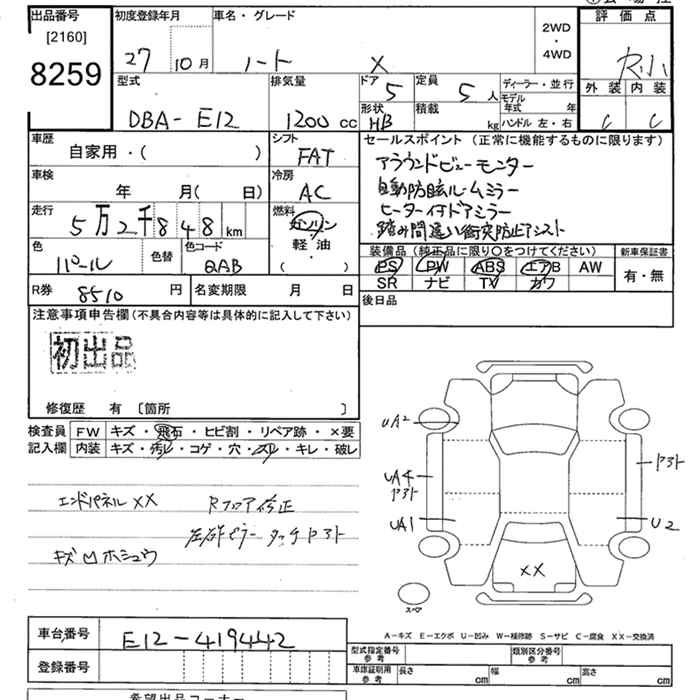 出品番号
[2160]
8259
初度登録年月
27 10月
車名・グレード
ノート X
2WD
・
4WD
評価点
R小
外装 内装
C C
型式
DBA-E12
排気量
1200cc
ドア 5
形状 HB
定員 5人
積載 kg
ディーラー・並行
モデル年式 年
ハンドル 左・右
車歴
自家用・( )
シフト
FAT
車検
年 月( 日)
冷房
AC
走行
5万2千848km
燃料
ガソリン
・
軽・油
( )
色
パール
色替
色コード
QAB
R券 8510円
名変期限 月 日
セールスポイント(正常に機能するものに限ります)
アラウンドビューモニター
自動防眩ルームミラー
ヒーター付ドアミラー
踏み間違い衝突防止アシスト
装備品(純正品に限り〇をつけてください)
PS PW ABS エアB AW
SR ナビ TV カワ
新車保証書
有・無
後日品
注意事項申告欄(不具合内容等は具体的に記入して下さい)
初出品
修復歴 有 〔箇所 〕
検査員記入欄
FW キズ・飛石・ヒビ割・リペア跡・×要
内装 キズ・汚レ・コゲ・穴・スレ・キレ・破レ
エンドパネルXX Rフロア修正
キズ凹ホシュウ
UA2
UA4
UA1
U2
XX
スペア
A-キズ E-エクボ U-凹み W-補修跡 S-サビ C-腐食 XX-交換済
車台番号
E12-419442
登録番号
型式指定番号
参考
類別区分番号
参考
車庫証明用
参考
長さ cm
幅 cm
高さ cm
希望出品コーナー